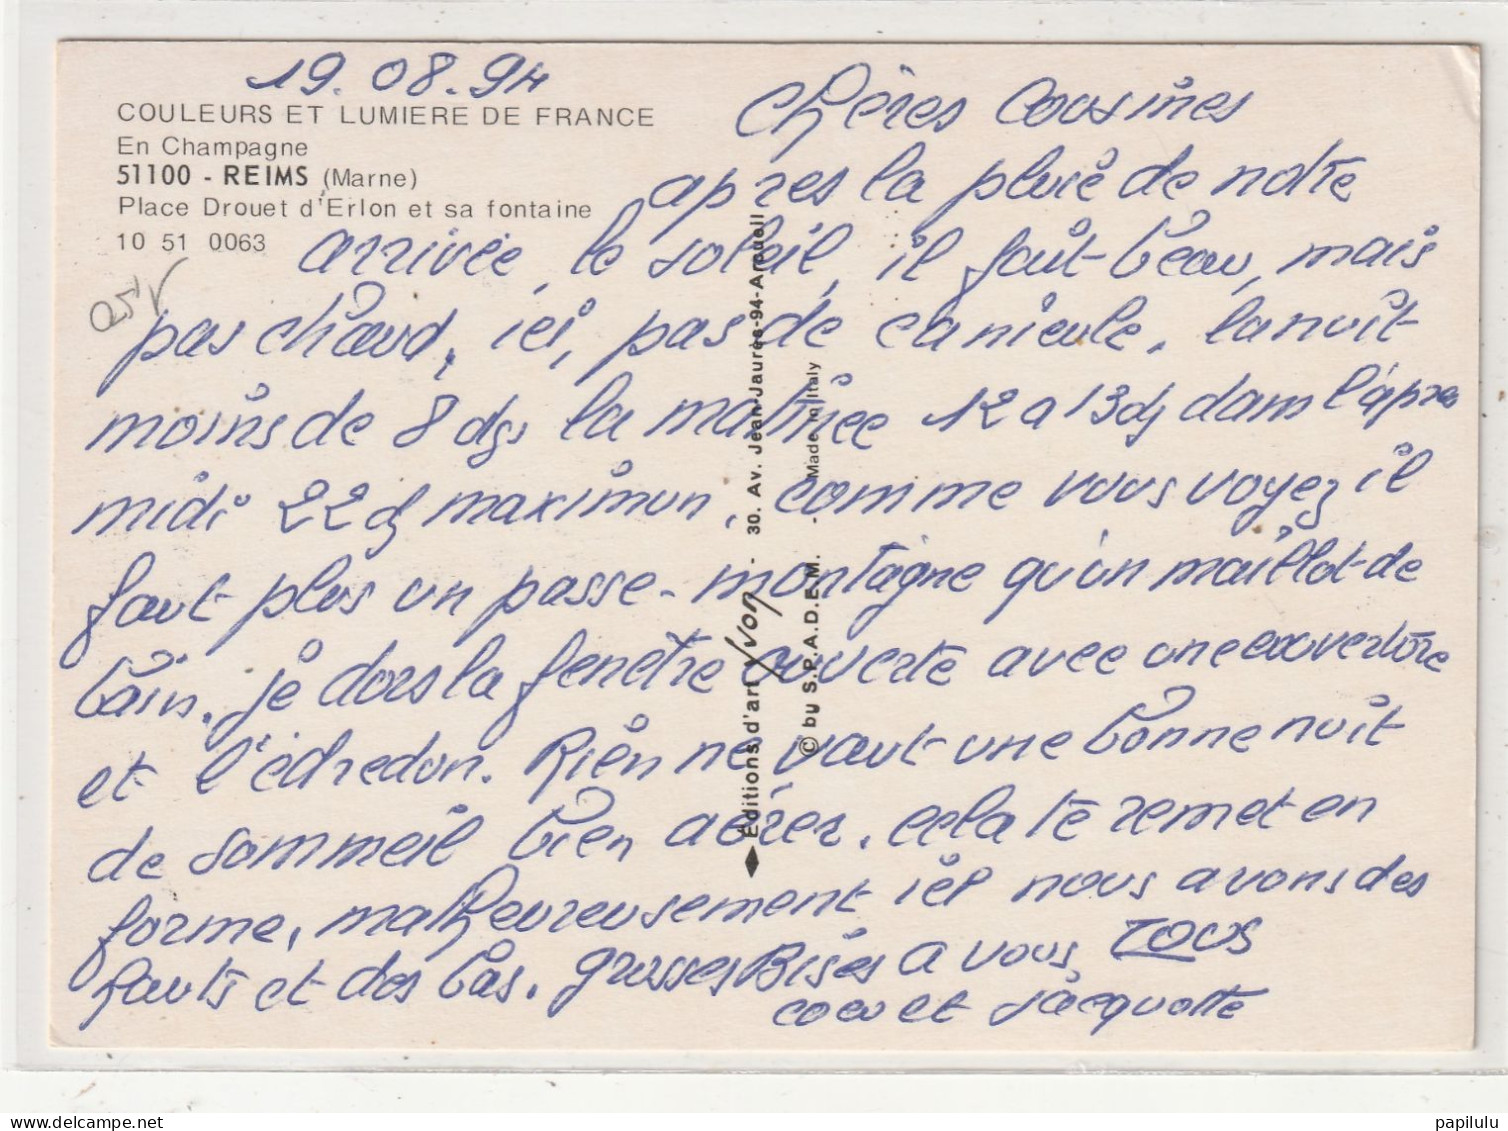 19.08.94
COULEURS ET LUMIERE DE FRANCE
En Champagne
51100 - REIMS (Marne)
Place Drouet d'Erlon et sa fontaine
10 51 0063
Chères Cousines
apres la pluie de notre
arrivée, le soleil, il fait beau, mais
pas chaud, ici, pas de canicule, la nuit
moins de 8 dgs la matinée 12 a 13 dg dans l'apres
midi 22 dg maximun, comme vous voyez il
faut plus un passe-montagne qu'un maillot de
bain. je dors la fenetre ouverte avec une couverture
et l'édredon. Rien ne vaut une bonne nuit
de sommeil bien aérer, cela te remet en
forme, malheureusement ici nous avons des
hauts et des bas. grosses Bises a vous TOUS
coco et Jacquotte
Éditions d'art Yvon - 30. Av. Jean-Jaurès-94-Arcueil
© by S.P.A.D.E.M. - Made in Italy
papilulu